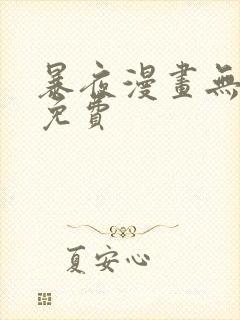 暴夜漫畫無
免費
夏安心